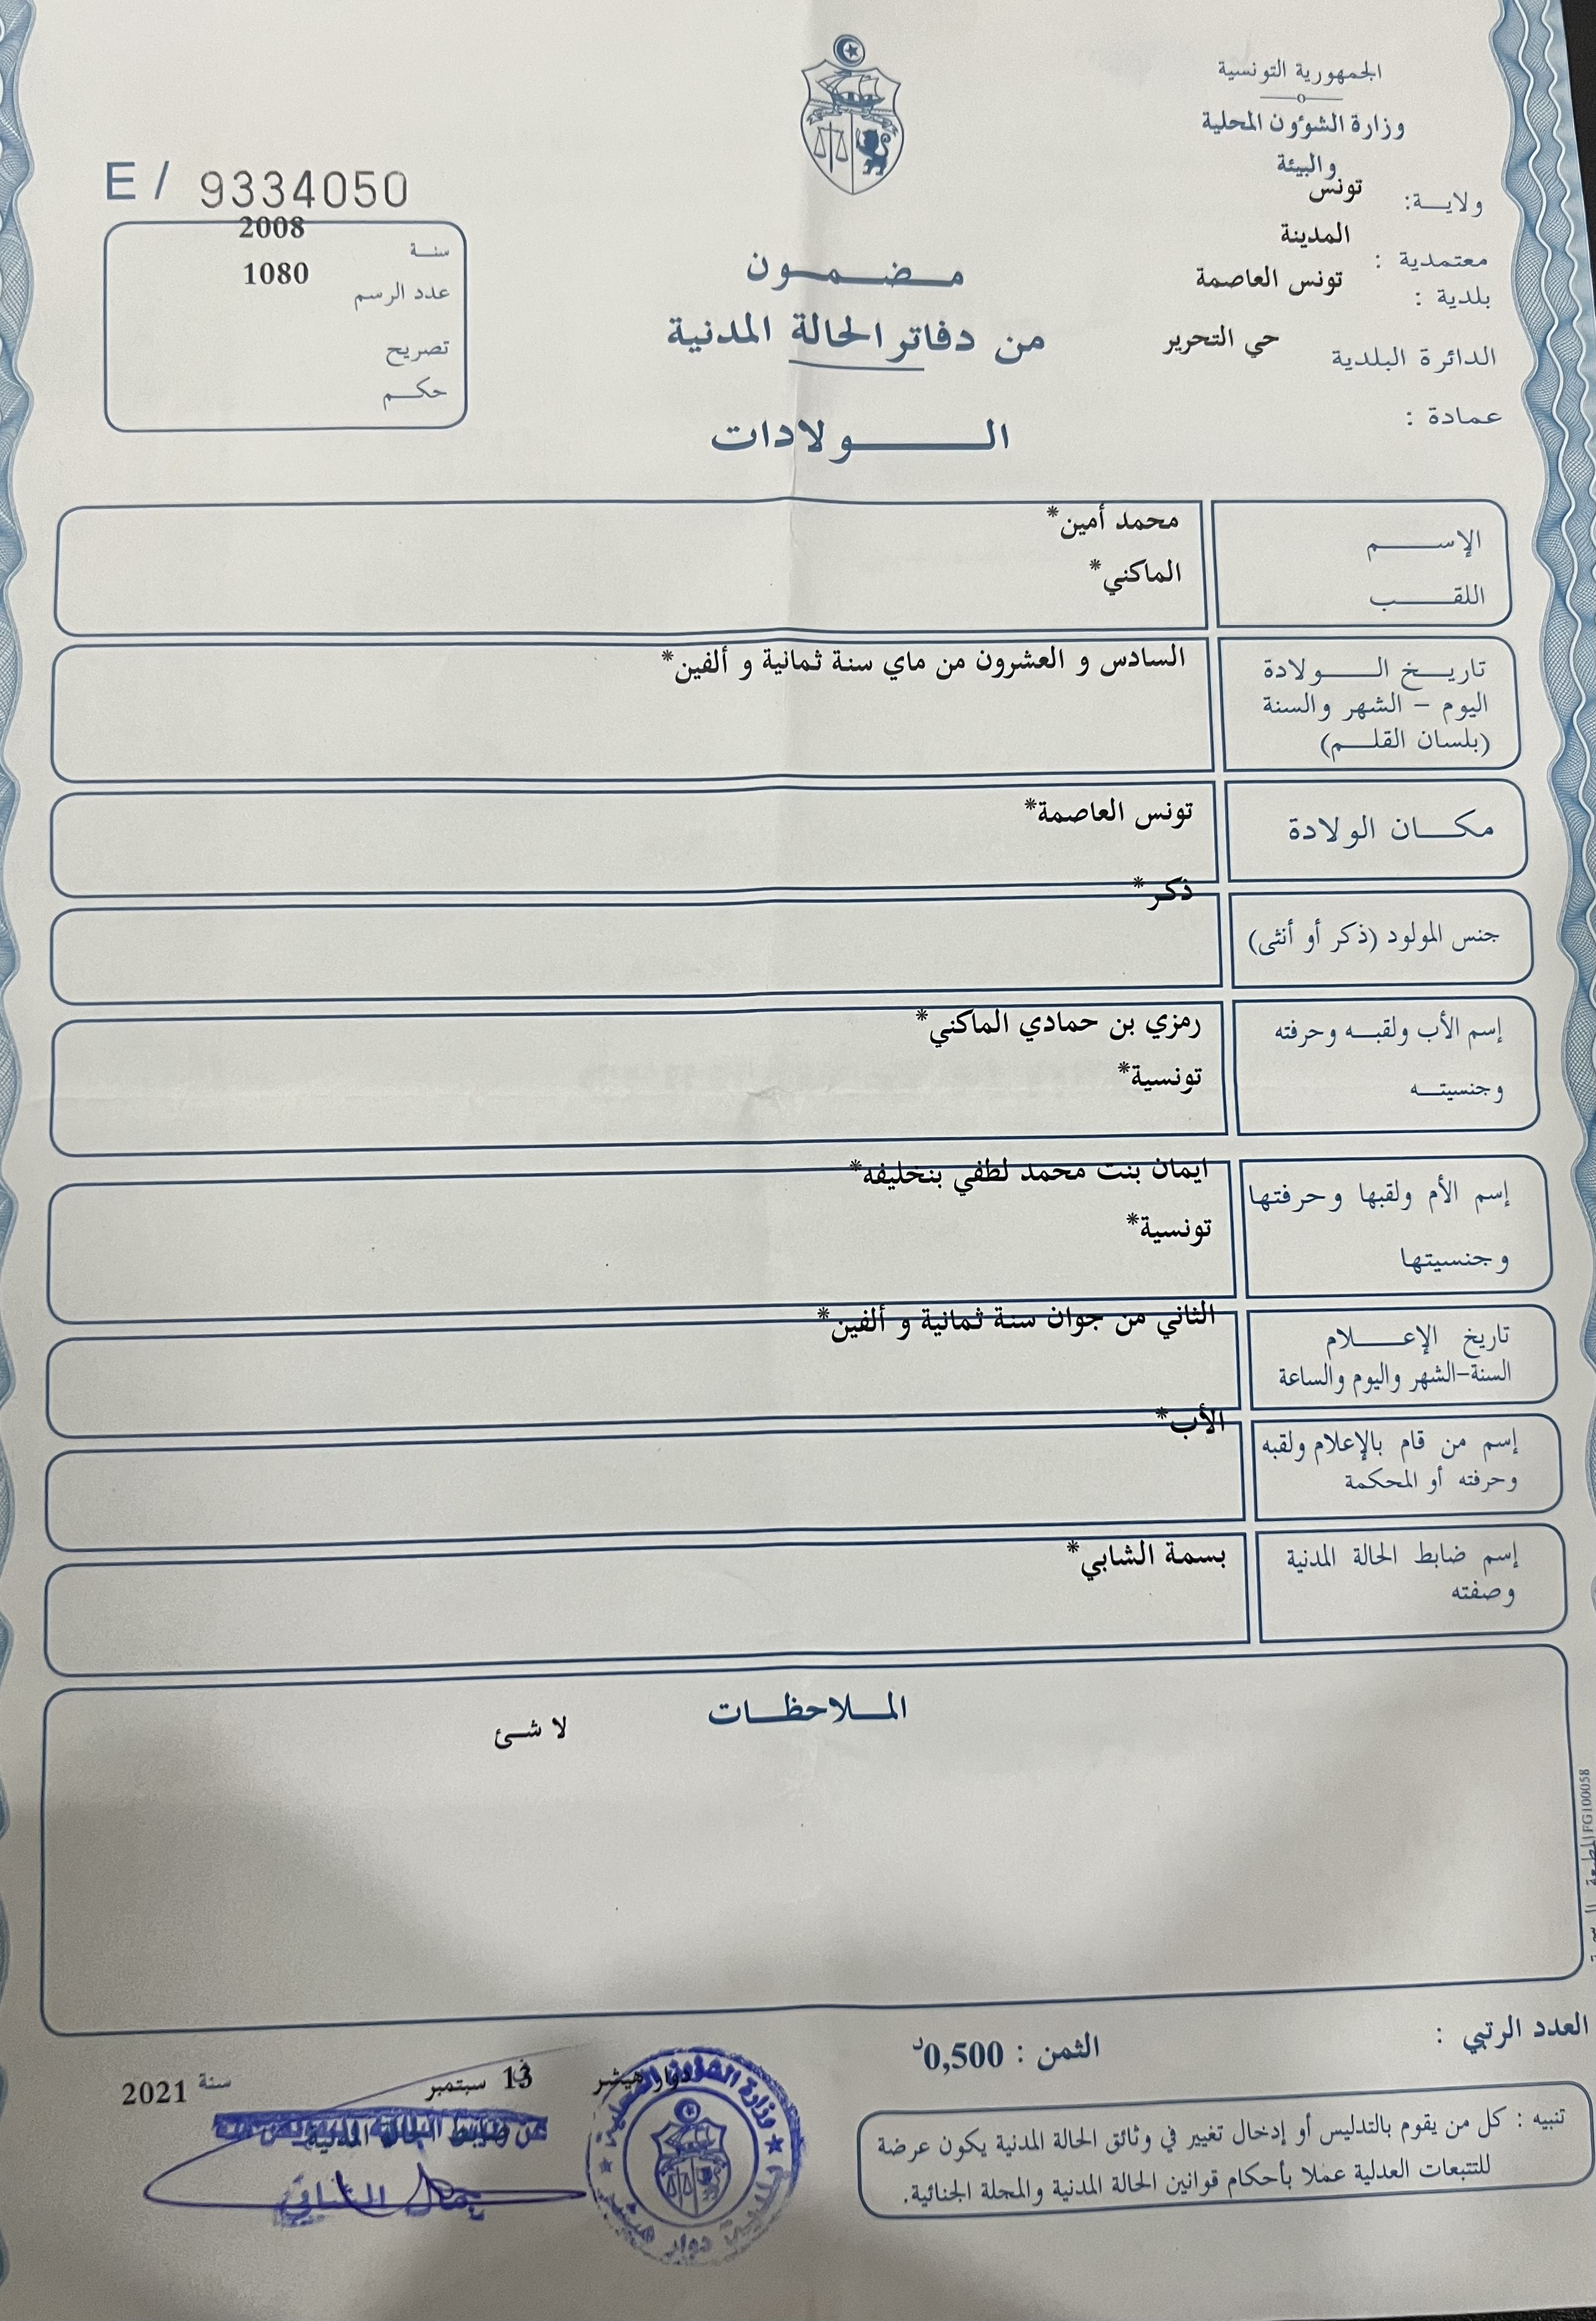 الجمهورية التونسية
وزارة الشؤون المحلية
والبيئة
ولاية: تونس
معتمدية : المدينة
بلدية : تونس العاصمة
الدائرة البلدية حي التحرير
عمادة :
E / 9334050
سنة 2008
عدد الرسم 1080
تصريح
حكم
مضمون
من دفاتر الحالة المدنية
الولادات
الإسم محمد أمين*
اللقب الماكني*
تاريخ الولادة السادس و العشرون من ماي سنة ثمانية و ألفين*
اليوم - الشهر والسنة
(بلسان القلم)
مكان الولادة تونس العاصمة*
جنس المولود (ذكر أو أنثى) ذكر*
إسم الأب ولقبه وحرفته رمزي بن حمادي الماكني*
وجنسيته تونسية*
إسم الأم ولقبها وحرفتها ايمان بنت محمد لطفي بنخليفه*
وجنسيتها تونسية*
تاريخ الإعلام الثاني من جوان سنة ثمانية و ألفين*
السنة-الشهر واليوم والساعة
إسم من قام بالإعلام ولقبه الأب*
وحرفته أو المحكمة
إسم ضابط الحالة المدنية بسمة الشابي*
وصفته
الملاحظات
لا شئ
FG100058
العدد الرتبي :
الثمن : 0,500د
دوار هيشر 13 سبتمبر سنة 2021
عن ضابط الحالة المدنية
تنبيه : كل من يقوم بالتدليس أو إدخال تغيير في وثائق الحالة المدنية يكون عرضة
للتتبعات العدلية عملا بأحكام قوانين الحالة المدنية والمجلة الجنائية.